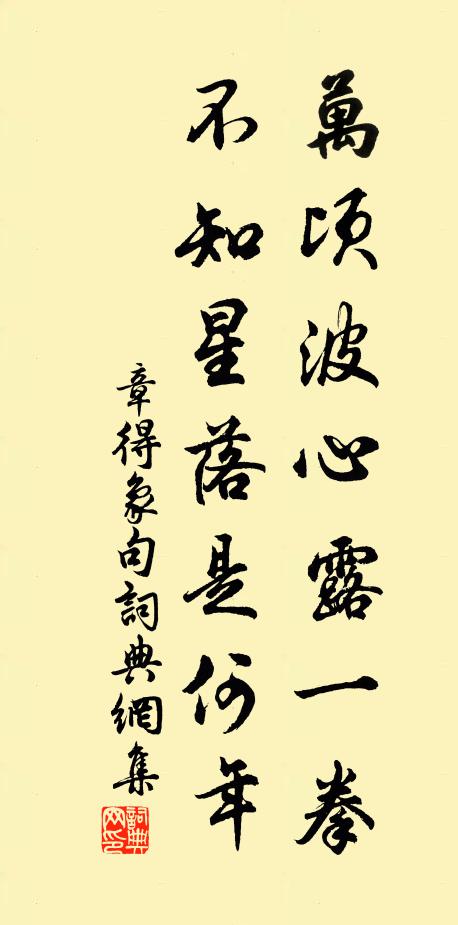 萬頃波心露一拳
不知星落是何年
章得象句詞典網集
詞典網印